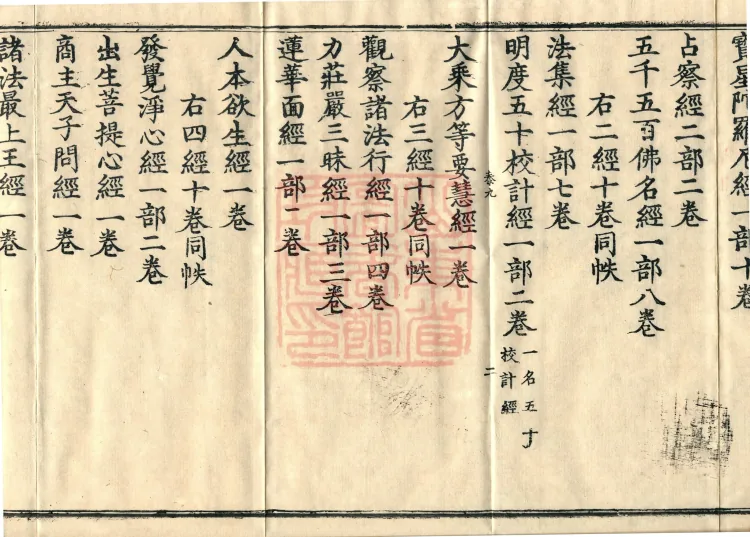 寶星陀羅尼經一部十卷
占察經二部二卷
五千五百佛名經一部八卷
右二經十卷同帙
法集經一部七卷
明度五十校計經一部二卷
一名五十
校計經
卷九
二
大乘方等要慧經一卷
右三經十卷同帙
觀察諸法行經一部四卷
力莊嚴三昧經一部三卷
蓮華面經一部二卷
人本欲生經一卷
右四經十卷同帙
發覺淨心經一部二卷
出生菩提心經一卷
商主天子問經一卷
諸法最上王經一卷